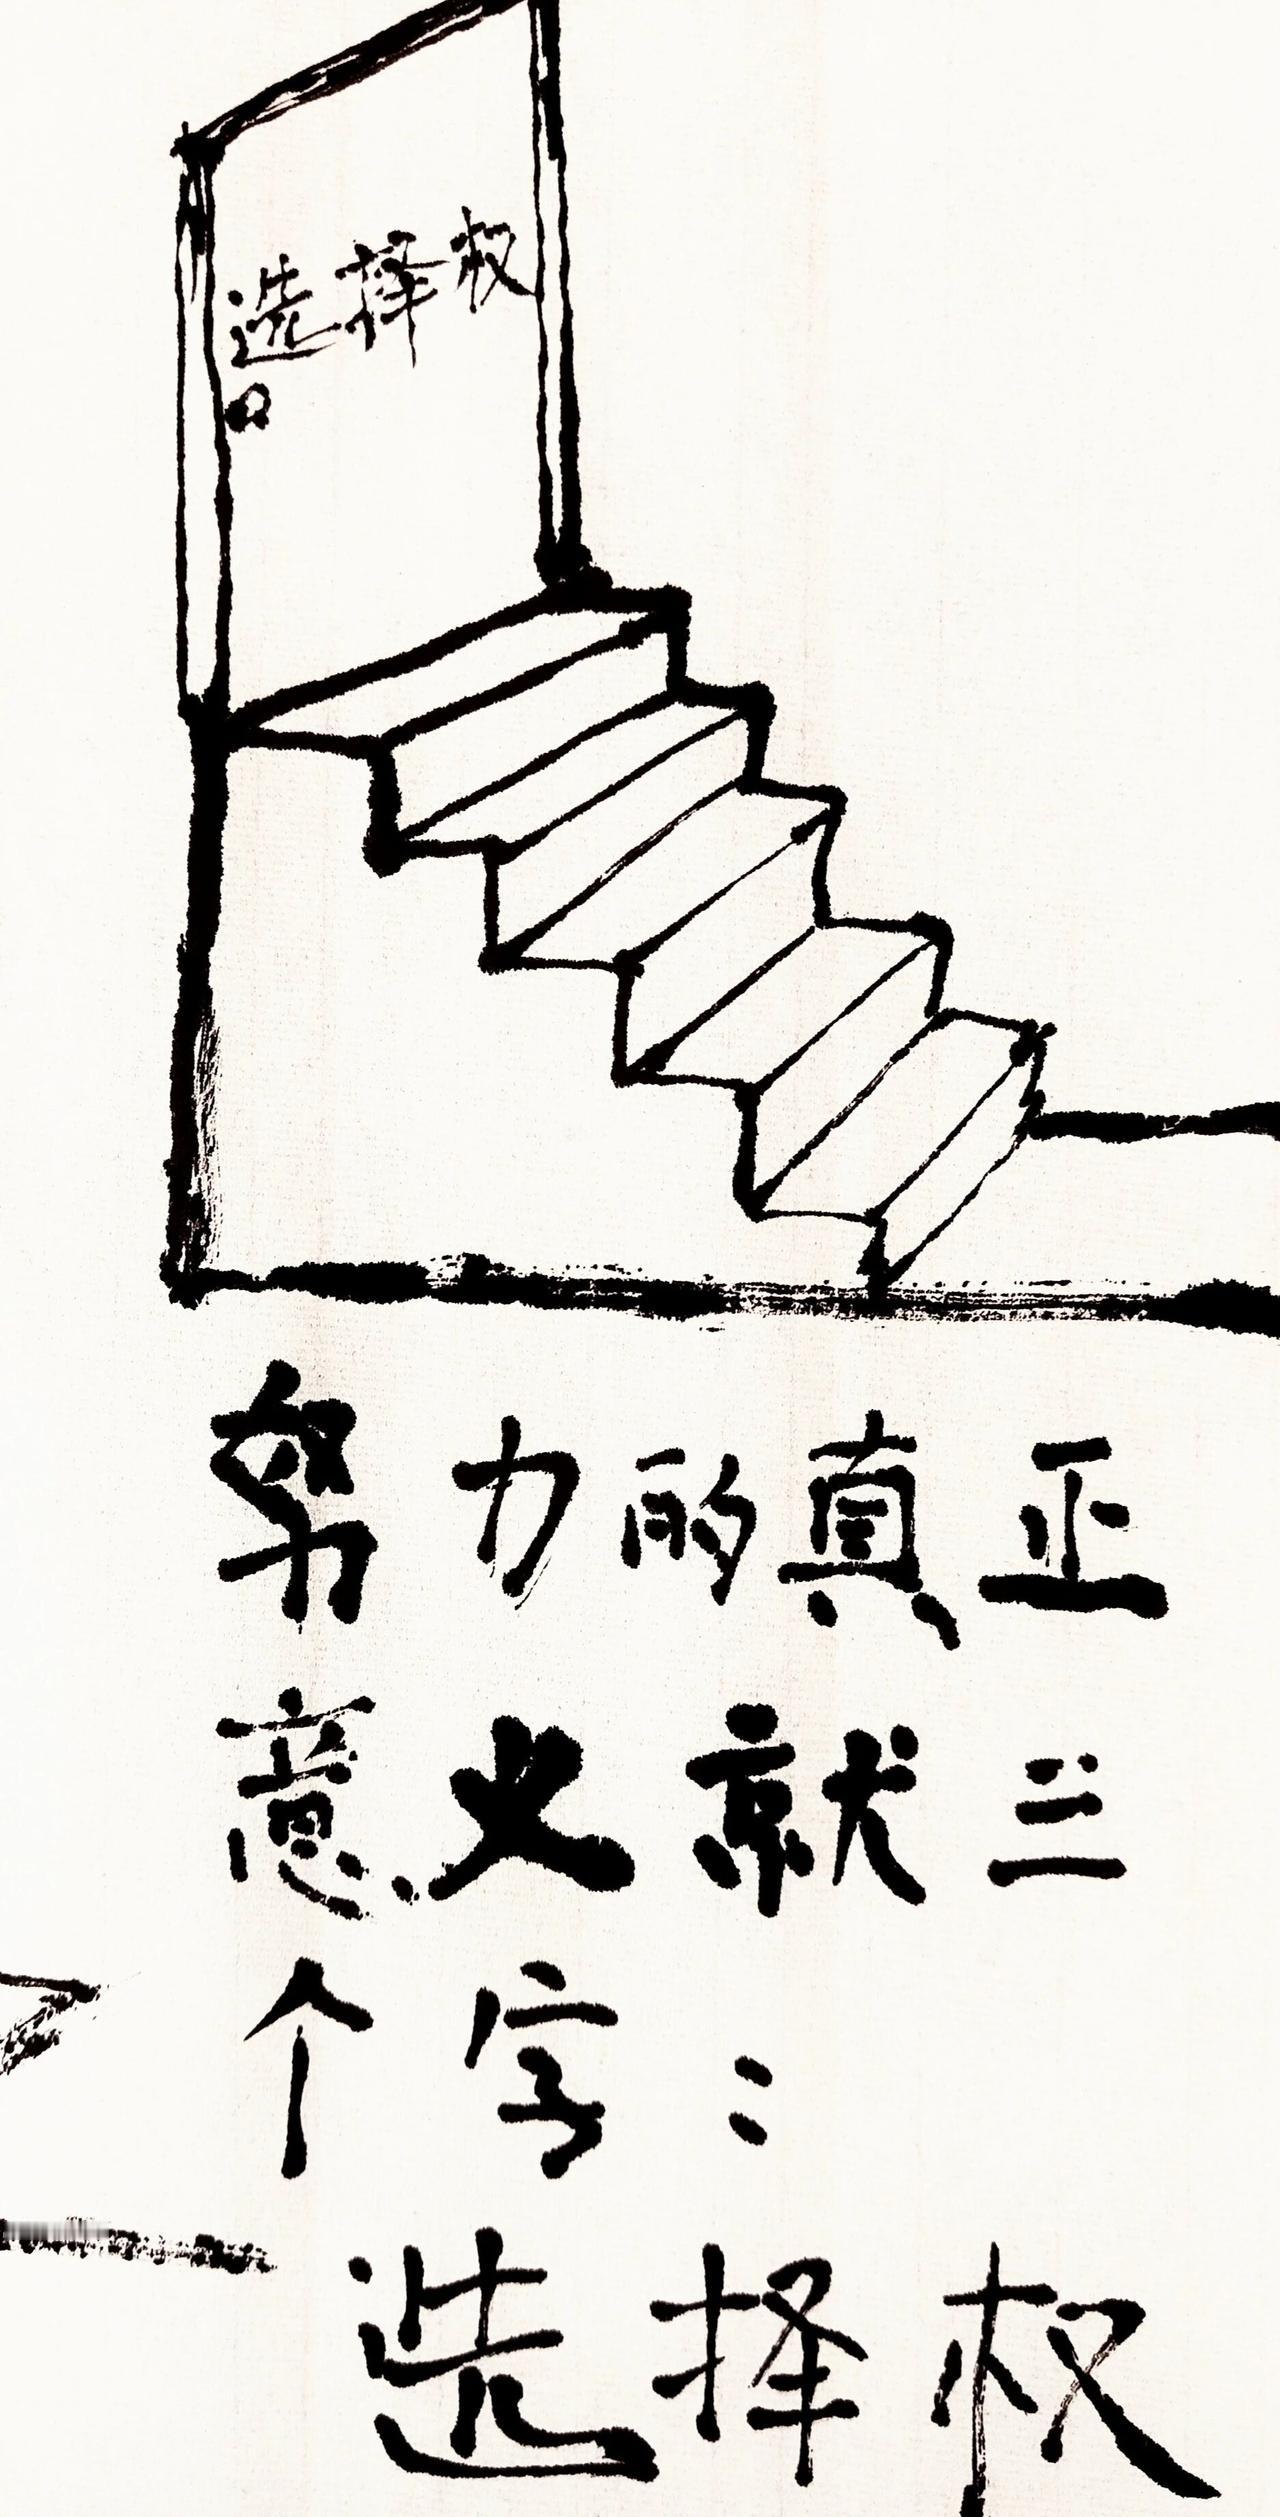 选择权
努力的真正
意义就三
个字：
选择权